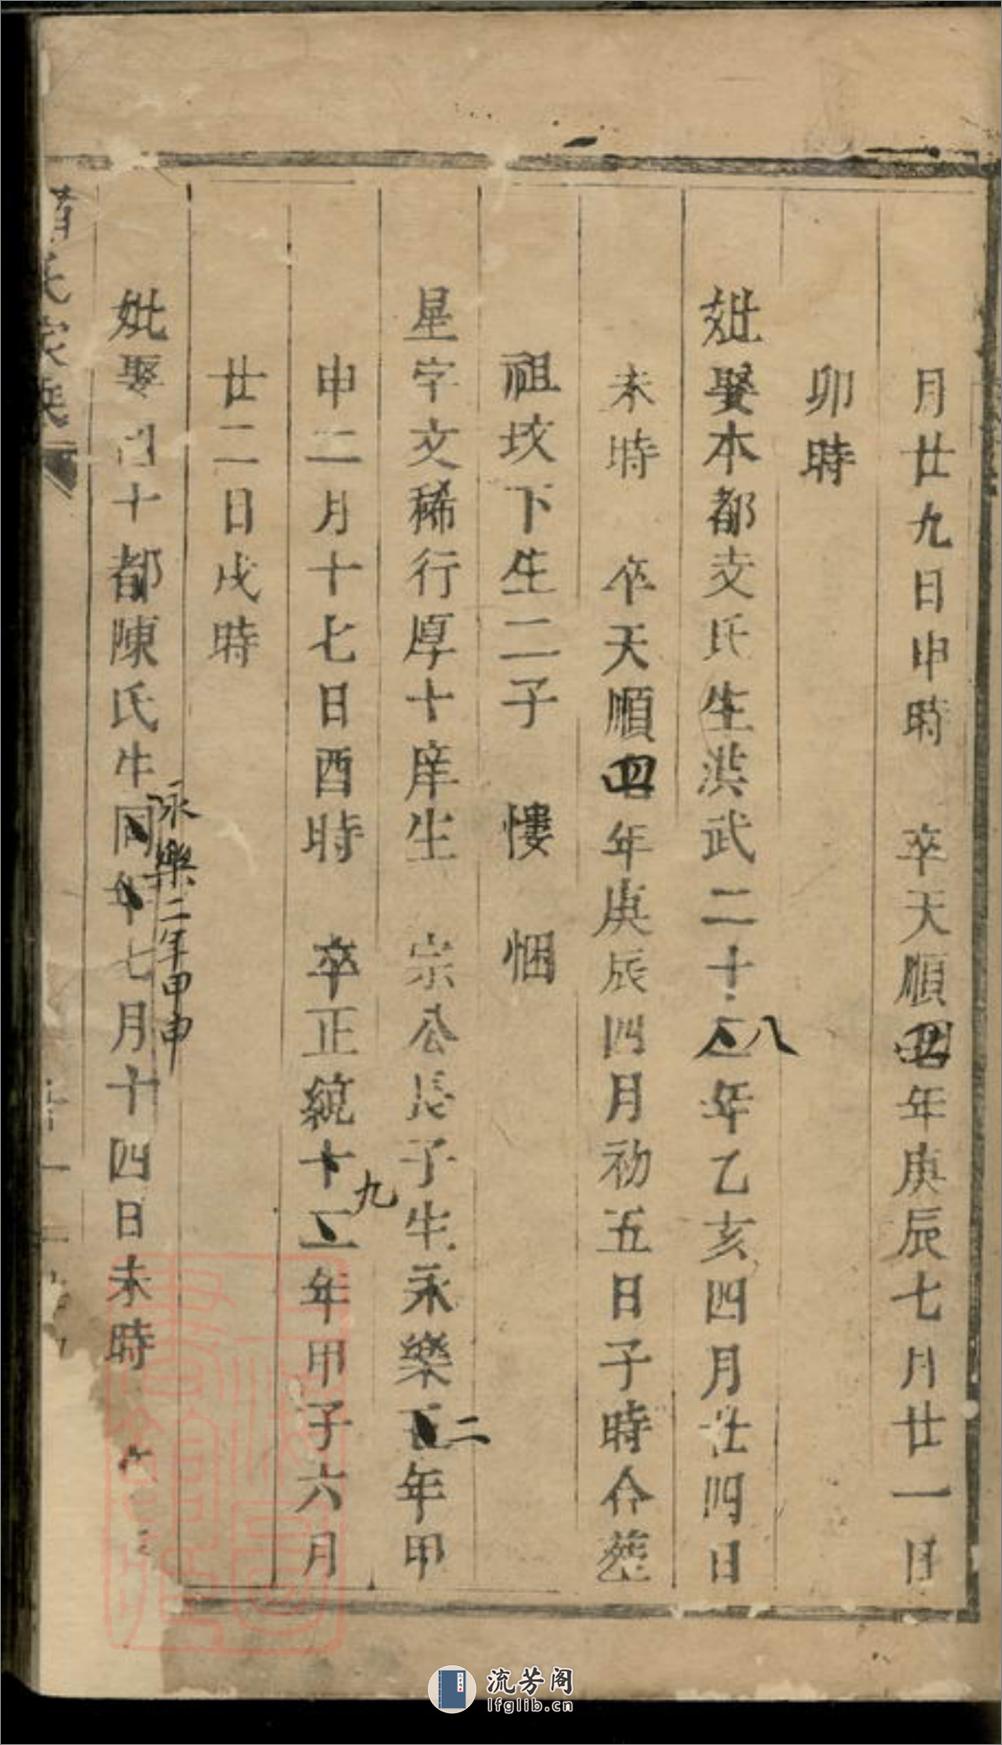 月廿九日申時　卒天順四年庚辰七月廿一日
卯時
妣娶本都文氏生洪武二十八年乙亥四月廿四日
未時　卒天順四年庚辰四月初五日子時合葬
祖坟下生二子　悽　悃
星字文稀行厚十庠生　宗公長子生永樂二年甲
申二月十七日酉時　卒正統九年甲子六月
廿二日戌時
妣娶四十都陳氏生同年七月十四日未時
永樂二年甲申
氏家乘
流芳阁
lfglib.cn